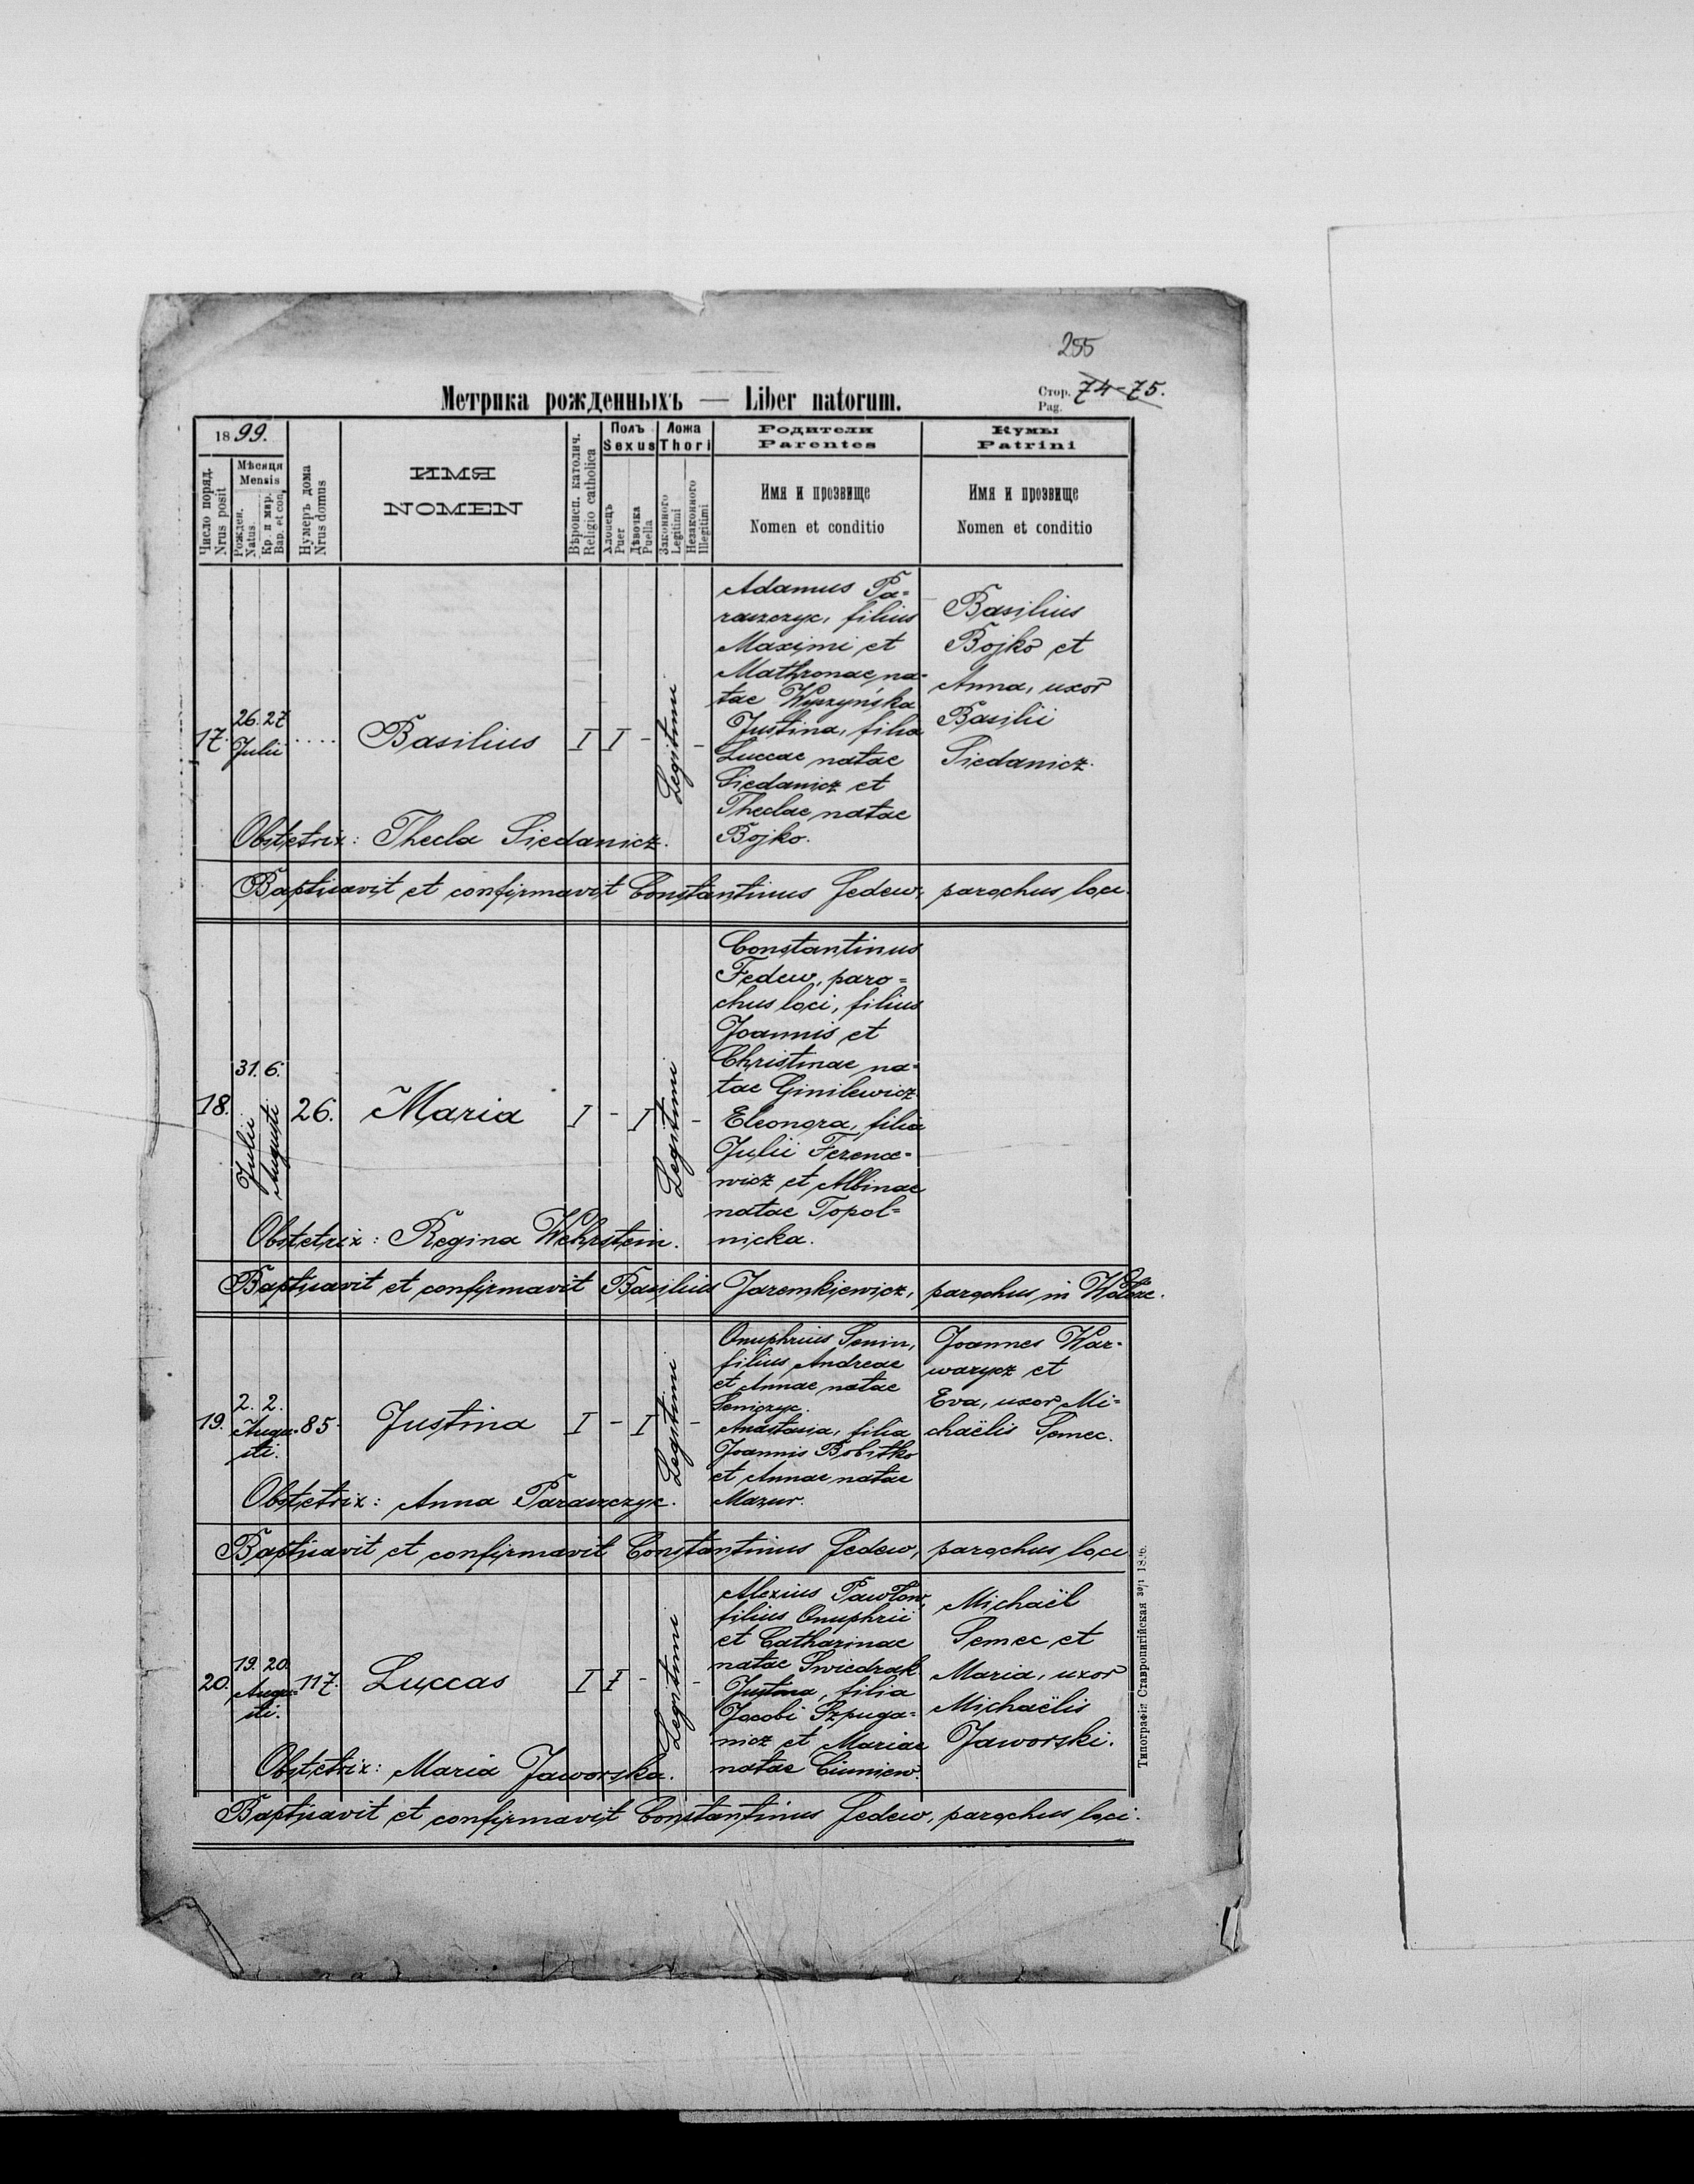 255
Метрика рожденныхъ — Liber natorum.
Стор. 74-75.
Pag.
1899.
Число поряд.
Nrus posit
Мѣсяця
Mensis
Рожден.
Natus.
Кр. и мѵр.
Bap. et con.
Нумеръ дома
Nrus domus
ИМЯ
NOMEN
Вѣроисп. католич.
Religio catholica
Полъ
Sexus
Хлопецъ
Puer
Дѣвочка
Puella
Ложа
Thori
Законного
Legitimi
Незаконного
Illegitimi
Родители
Parentes
Имя и прозвище
Nomen et conditio
Кумы
Patrini
Имя и прозвище
Nomen et conditio
17. 26. 27.
Julii
....
Basilius
I I - Legitimi -
Adamus Pa=
raszczyc, filius
Maximi et
Mathronae na=
tae Wyszyńska
Justina, filia
Luccae natae
Siedanicz et
Theclae natae
Bojko.
Basilius
Bojko et
Anna, uxor
Basilii
Siedanicz.
Obstetrix: Thecla Siedanicz.
Baptisavit et confirmavit Constantinus Fedew, parochus loci.
18. 31. 6.
Julii
Augusti
26. Maria
I - I Legitimi -
Constantinus
Fedew, paro=
chus loci, filius
Joannis et
Christinae na=
tae Ginilewicz
Eleonora, filia
Julii Ferenc=
wicz et Albinae
natae Topol=
nicka.
Obstetrix: Regina Wehrstein.
Baptisavit et confirmavit Basilius Jaremkiewicz, parochus in
19. 2. 2.
Augu=
sti.
85. Justina
I - I Legitimi -
Onuphrius Senin,
filius Andreae
et Annae natae
Seniczyc.
Anastasia, filia
Joannis Bobitko
et Annae natae
Mazur.
Joannes War=
warycz et
Eva, uxor Mi=
chaëlis Semec.
Obstetrix: Anna Paraszczyc.
Baptisavit et confirmavit Constantinus Fedew, parochus loci
20. 19. 20.
Augu=
sti.
117. Luccas
I I - Legitimi -
Alexius Pawłow,
filius Onuphrii
et Catharinae
natae Swiedrak
Justina, filia
Jacobi Szpuga=
nicz et Mariae
natae Ciuniew.
Michaël
Semec et
Maria, uxor
Michaëlis
Jaworski.
Obstetrix: Maria Jaworska.
Baptisavit et confirmavit Constantinus Fedew, parochus loci.
Типографія Ставропигійская